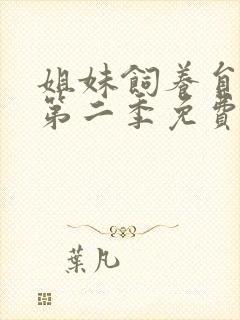 姐妹飼養
第二季免費
葉凡